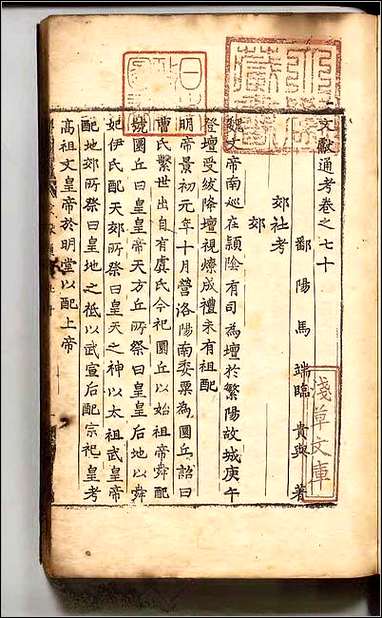 文獻通考卷之七十
鄱陽馬端臨貴與著
郊社考
郊
魏文帝南巡在潁陰有司為壇於繁陽故城庚午
登壇受紱降壇視燎成禮未有祖配
明帝景初元年十月營洛陽南委粟為圜丘詔曰
曹氏繫世出自有虞氏今祀圜丘以始祖帝舜配
號圜丘曰皇皇帝天方丘所祭曰皇皇后地以舜
妃伊氏配天郊所祭曰皇天之神以太祖武皇帝
配地郊所祭曰皇地之祇以武宣后配宗祀皇考
高祖文皇帝於明堂以配上帝
淺草文庫